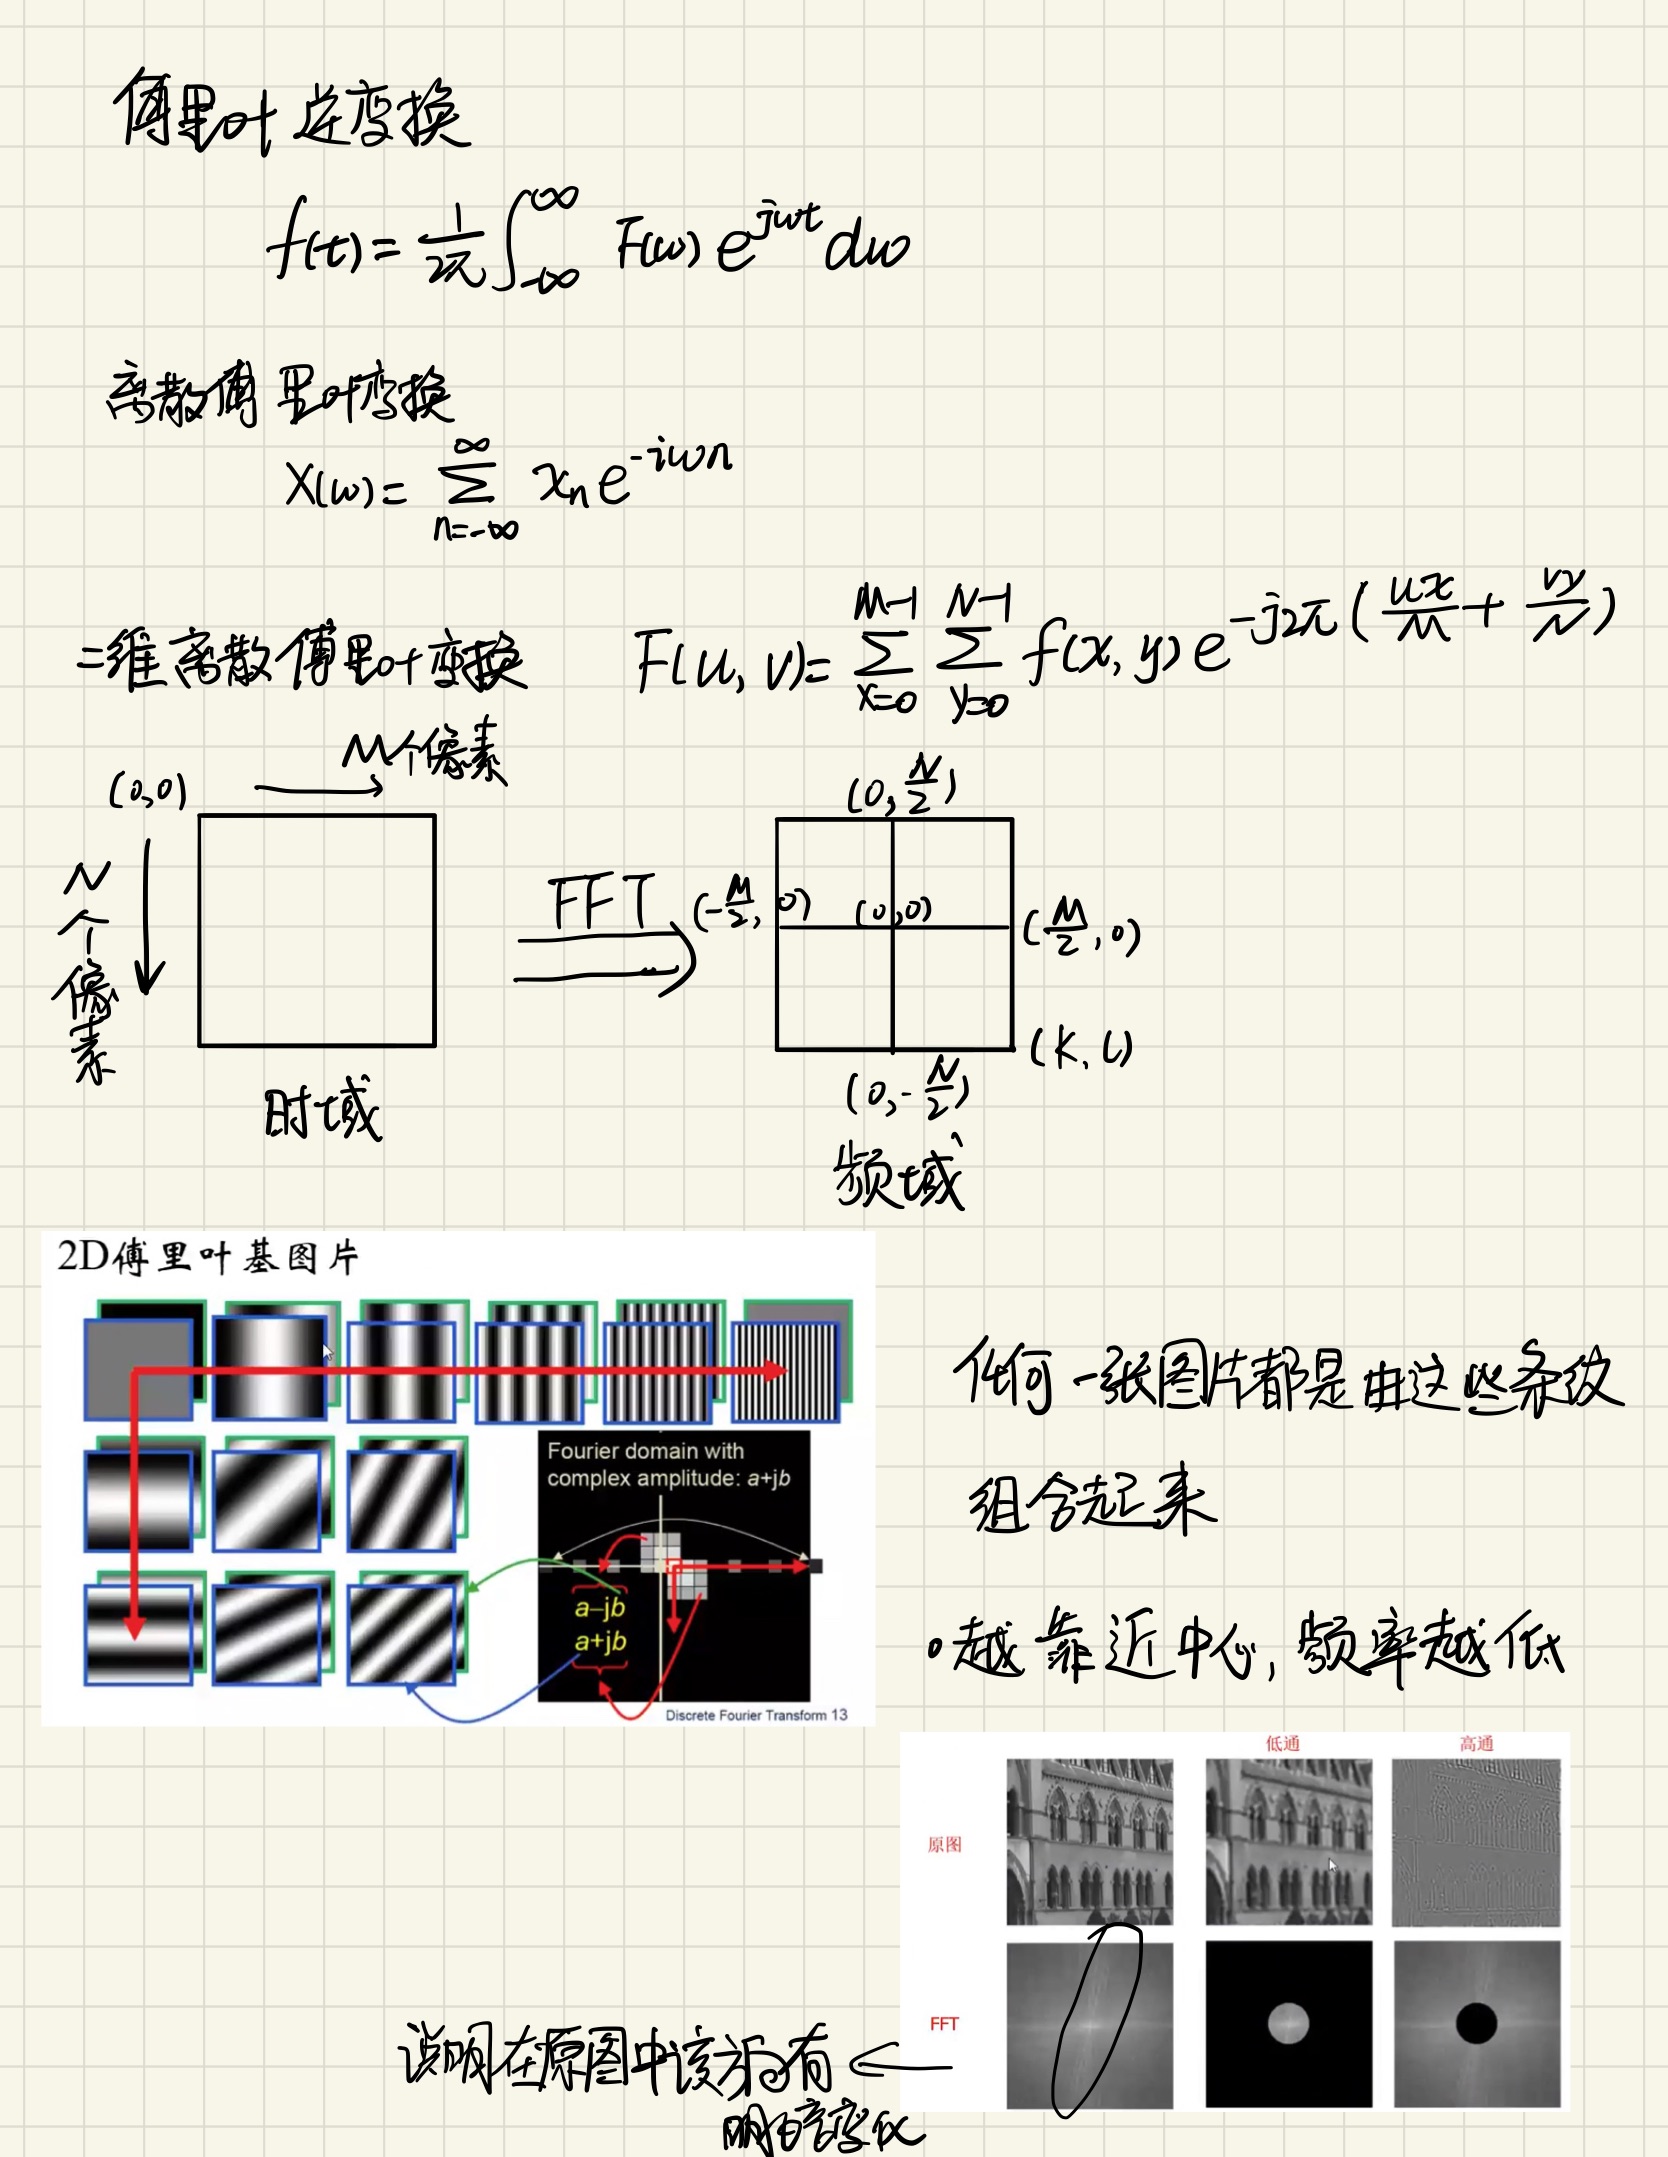 傅里叶逆变换
f(t) = \frac{1}{2π} \int_{-∞}^{∞} F(ω) e^{jωt} dω
离散傅里叶变换
X(ω) = \sum_{n=-∞}^{∞} x_n e^{-iωn}
二维离散傅里叶变换 F(u, v) = \sum_{x=0}^{M-1} \sum_{y=0}^{N-1} f(x, y) e^{-j2π(\frac{ux}{M} + \frac{vy}{N})}
M个像素
(0,0)
N个像素
时域
FFT
(0, \frac{N}{2})
(-\frac{M}{2}, 0)
(0,0)
(\frac{M}{2}, 0)
(K, L)
(0, -\frac{N}{2})
频域
2D傅里叶基图片
Fourier domain with
complex amplitude: a+jb
a–jb
a+jb
Discrete Fourier Transform 13
任何一张图片都是由这些条纹
组合起来
。越靠近中心, 频率越低
低通 高通
原图
FFT
说明在原图中该方向有
明暗变化